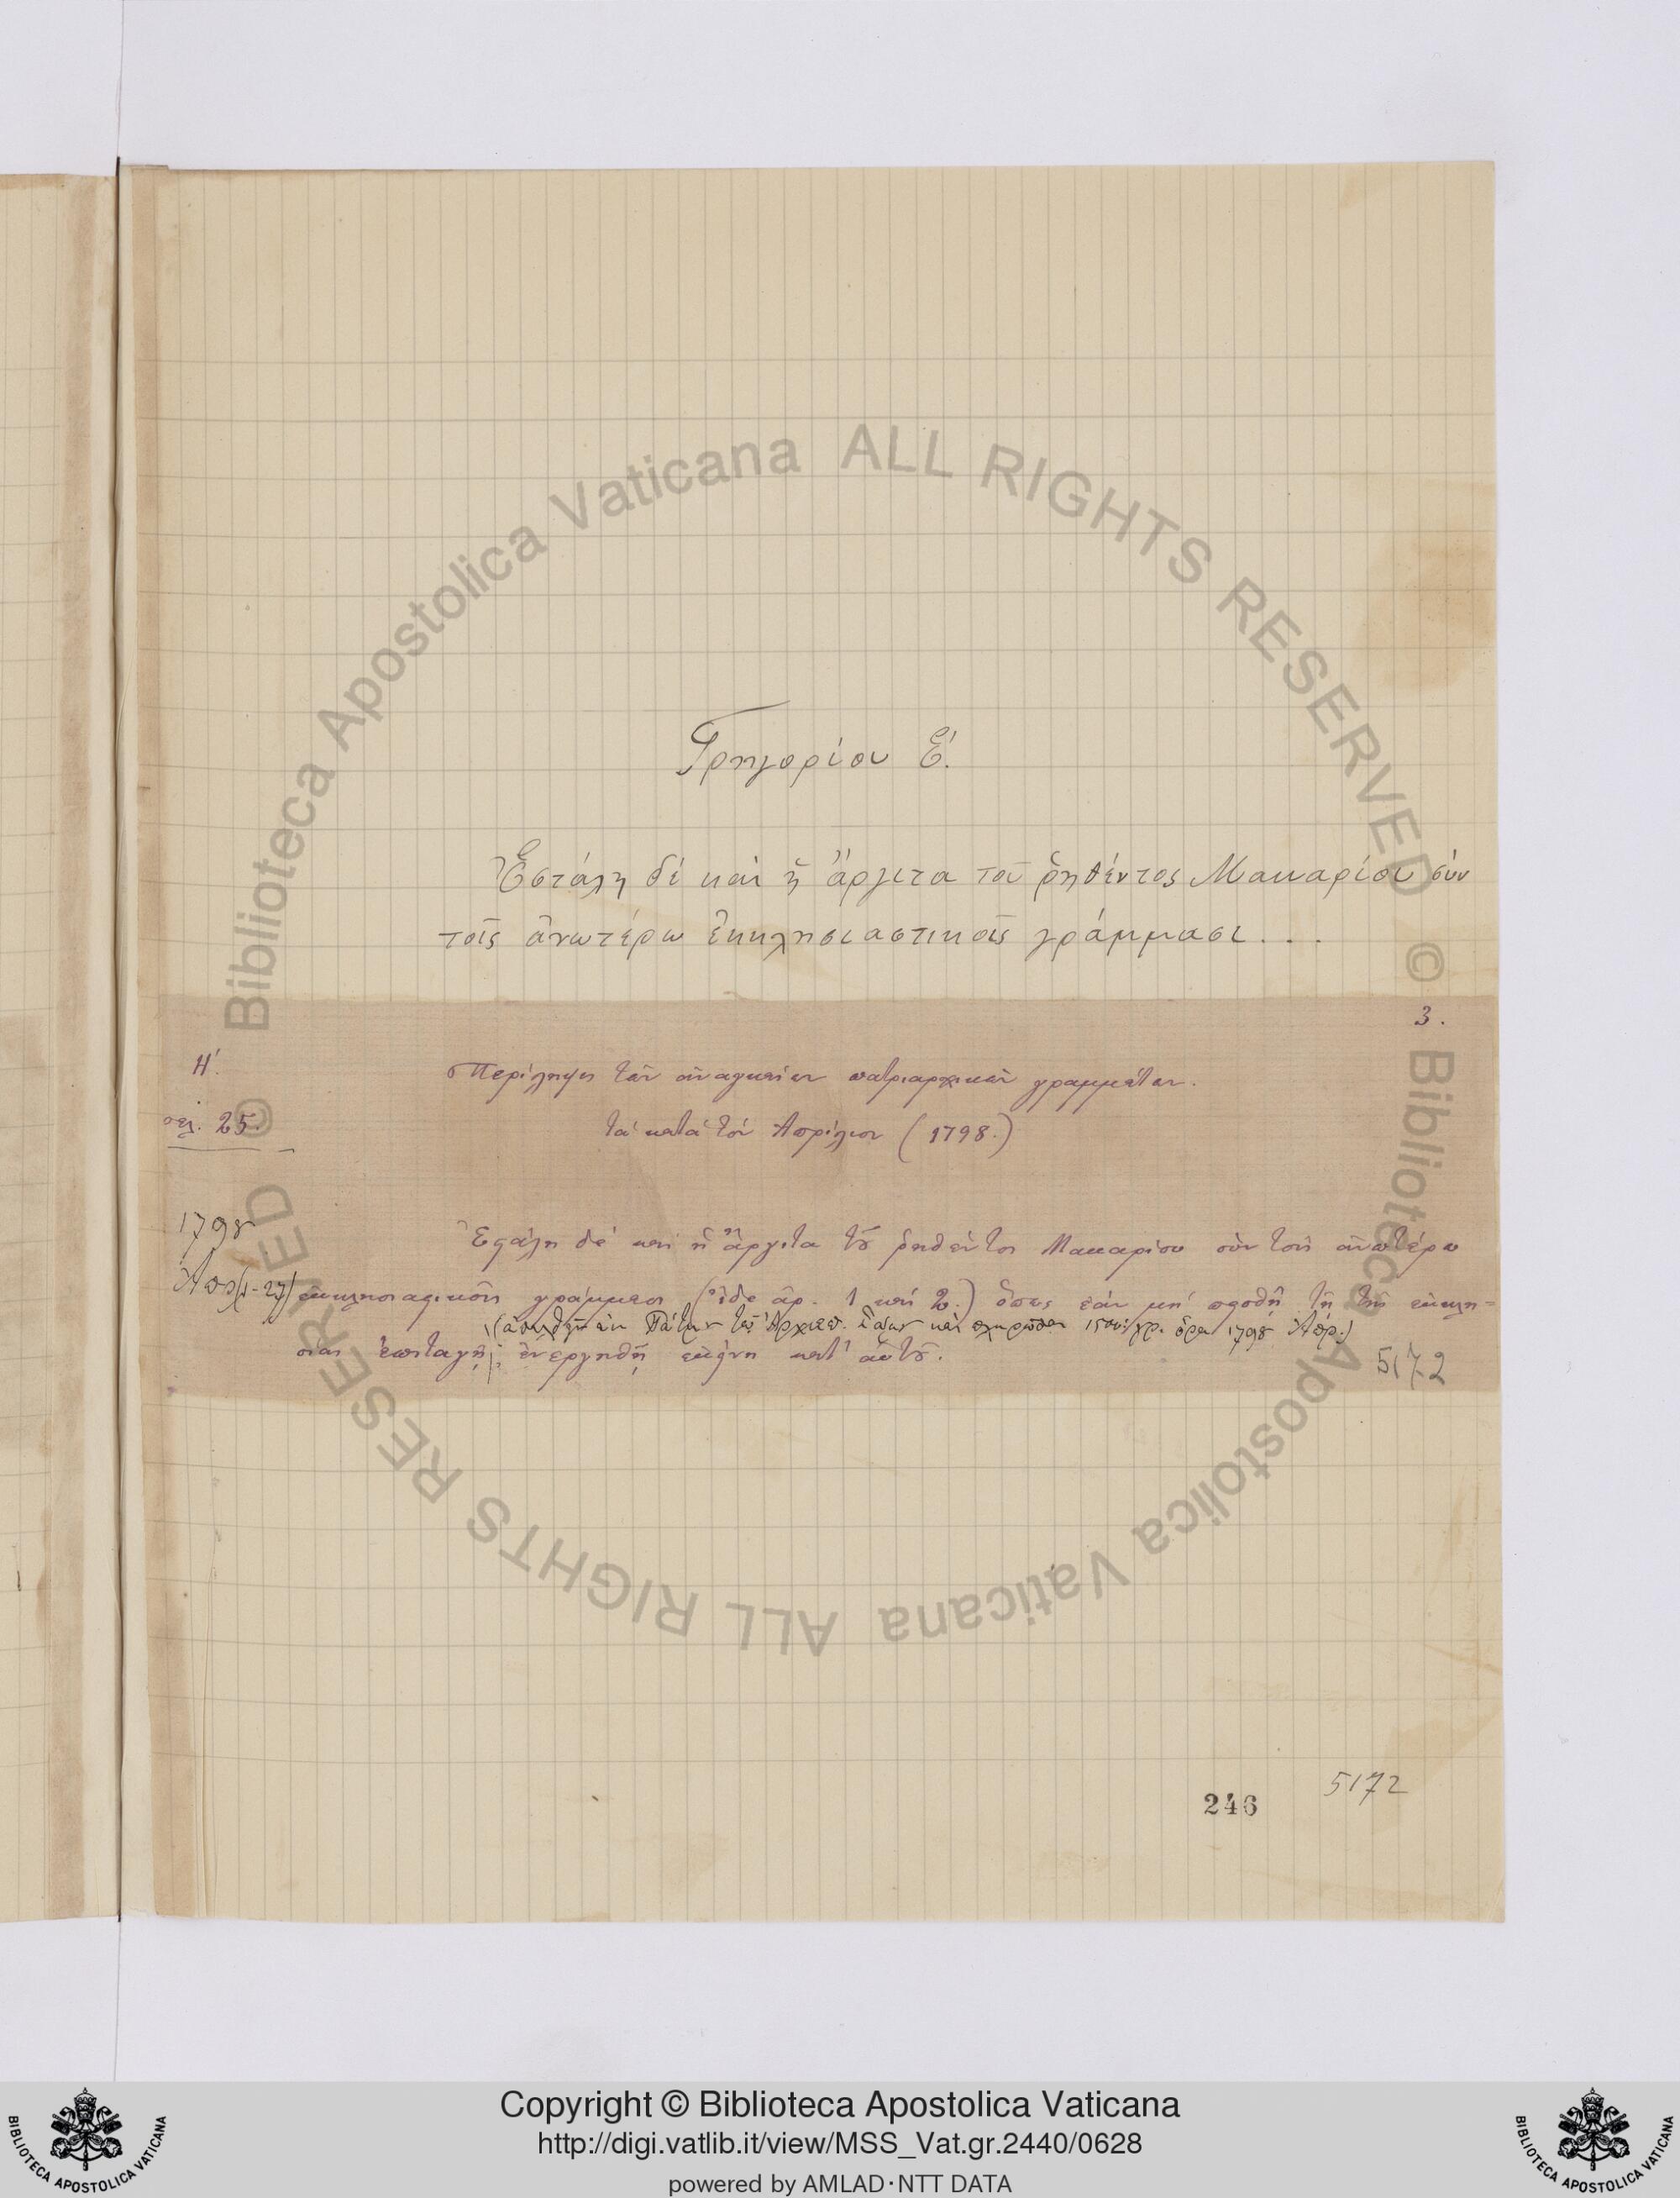 Γρηγορίου Ε΄.
Ἐστάλη δὲ καὶ ἡ ἄργιτα τοῦ ῥηθέντος Μακαρίου σὺν
τοῖς ἀνωτέρω ἐκκλησιαστικοῖς γράμμασι...
3.
Η΄.
Περίληψις τῶν ἀναγκαίων πατριαρχικῶν γραμμάτων.
σελ. 25.
τὰ κατὰ τὸν Ἀπρίλιον (1798.)
1798
Ἐστάλη δὲ καὶ ἡ ἄργιτα τοῦ ῥηθέντος Μακαρίου σὺν τοῖς ἀνωτέρω
ἐκκλησιαστικοῖς γράμμασι (ἴδε ἀρ. 1 καὶ 2.) ὅπως ἐὰν μὴ πεισθῇ τῇ τῆς ἐκκλη-
1798 Ἀπρ.)
σίας ἐπιταγῇ, ἐνεργηθῇ ἐκείνη κατ' αὐτοῦ.
5172
246
5172
Biblioteca Apostolica Vaticana ALL RIGHTS RESERVED ©
Biblioteca Apostolica Vaticana ALL RIGHTS RESERVED ©
Copyright © Biblioteca Apostolica Vaticana
http://digi.vatlib.it/view/MSS_Vat.gr.2440/0628
powered by AMLAD·NTT DATA
BIBLIOTECA APOSTOLICA VATICANA
BIBLIOTECA APOSTOLICA VATICANA